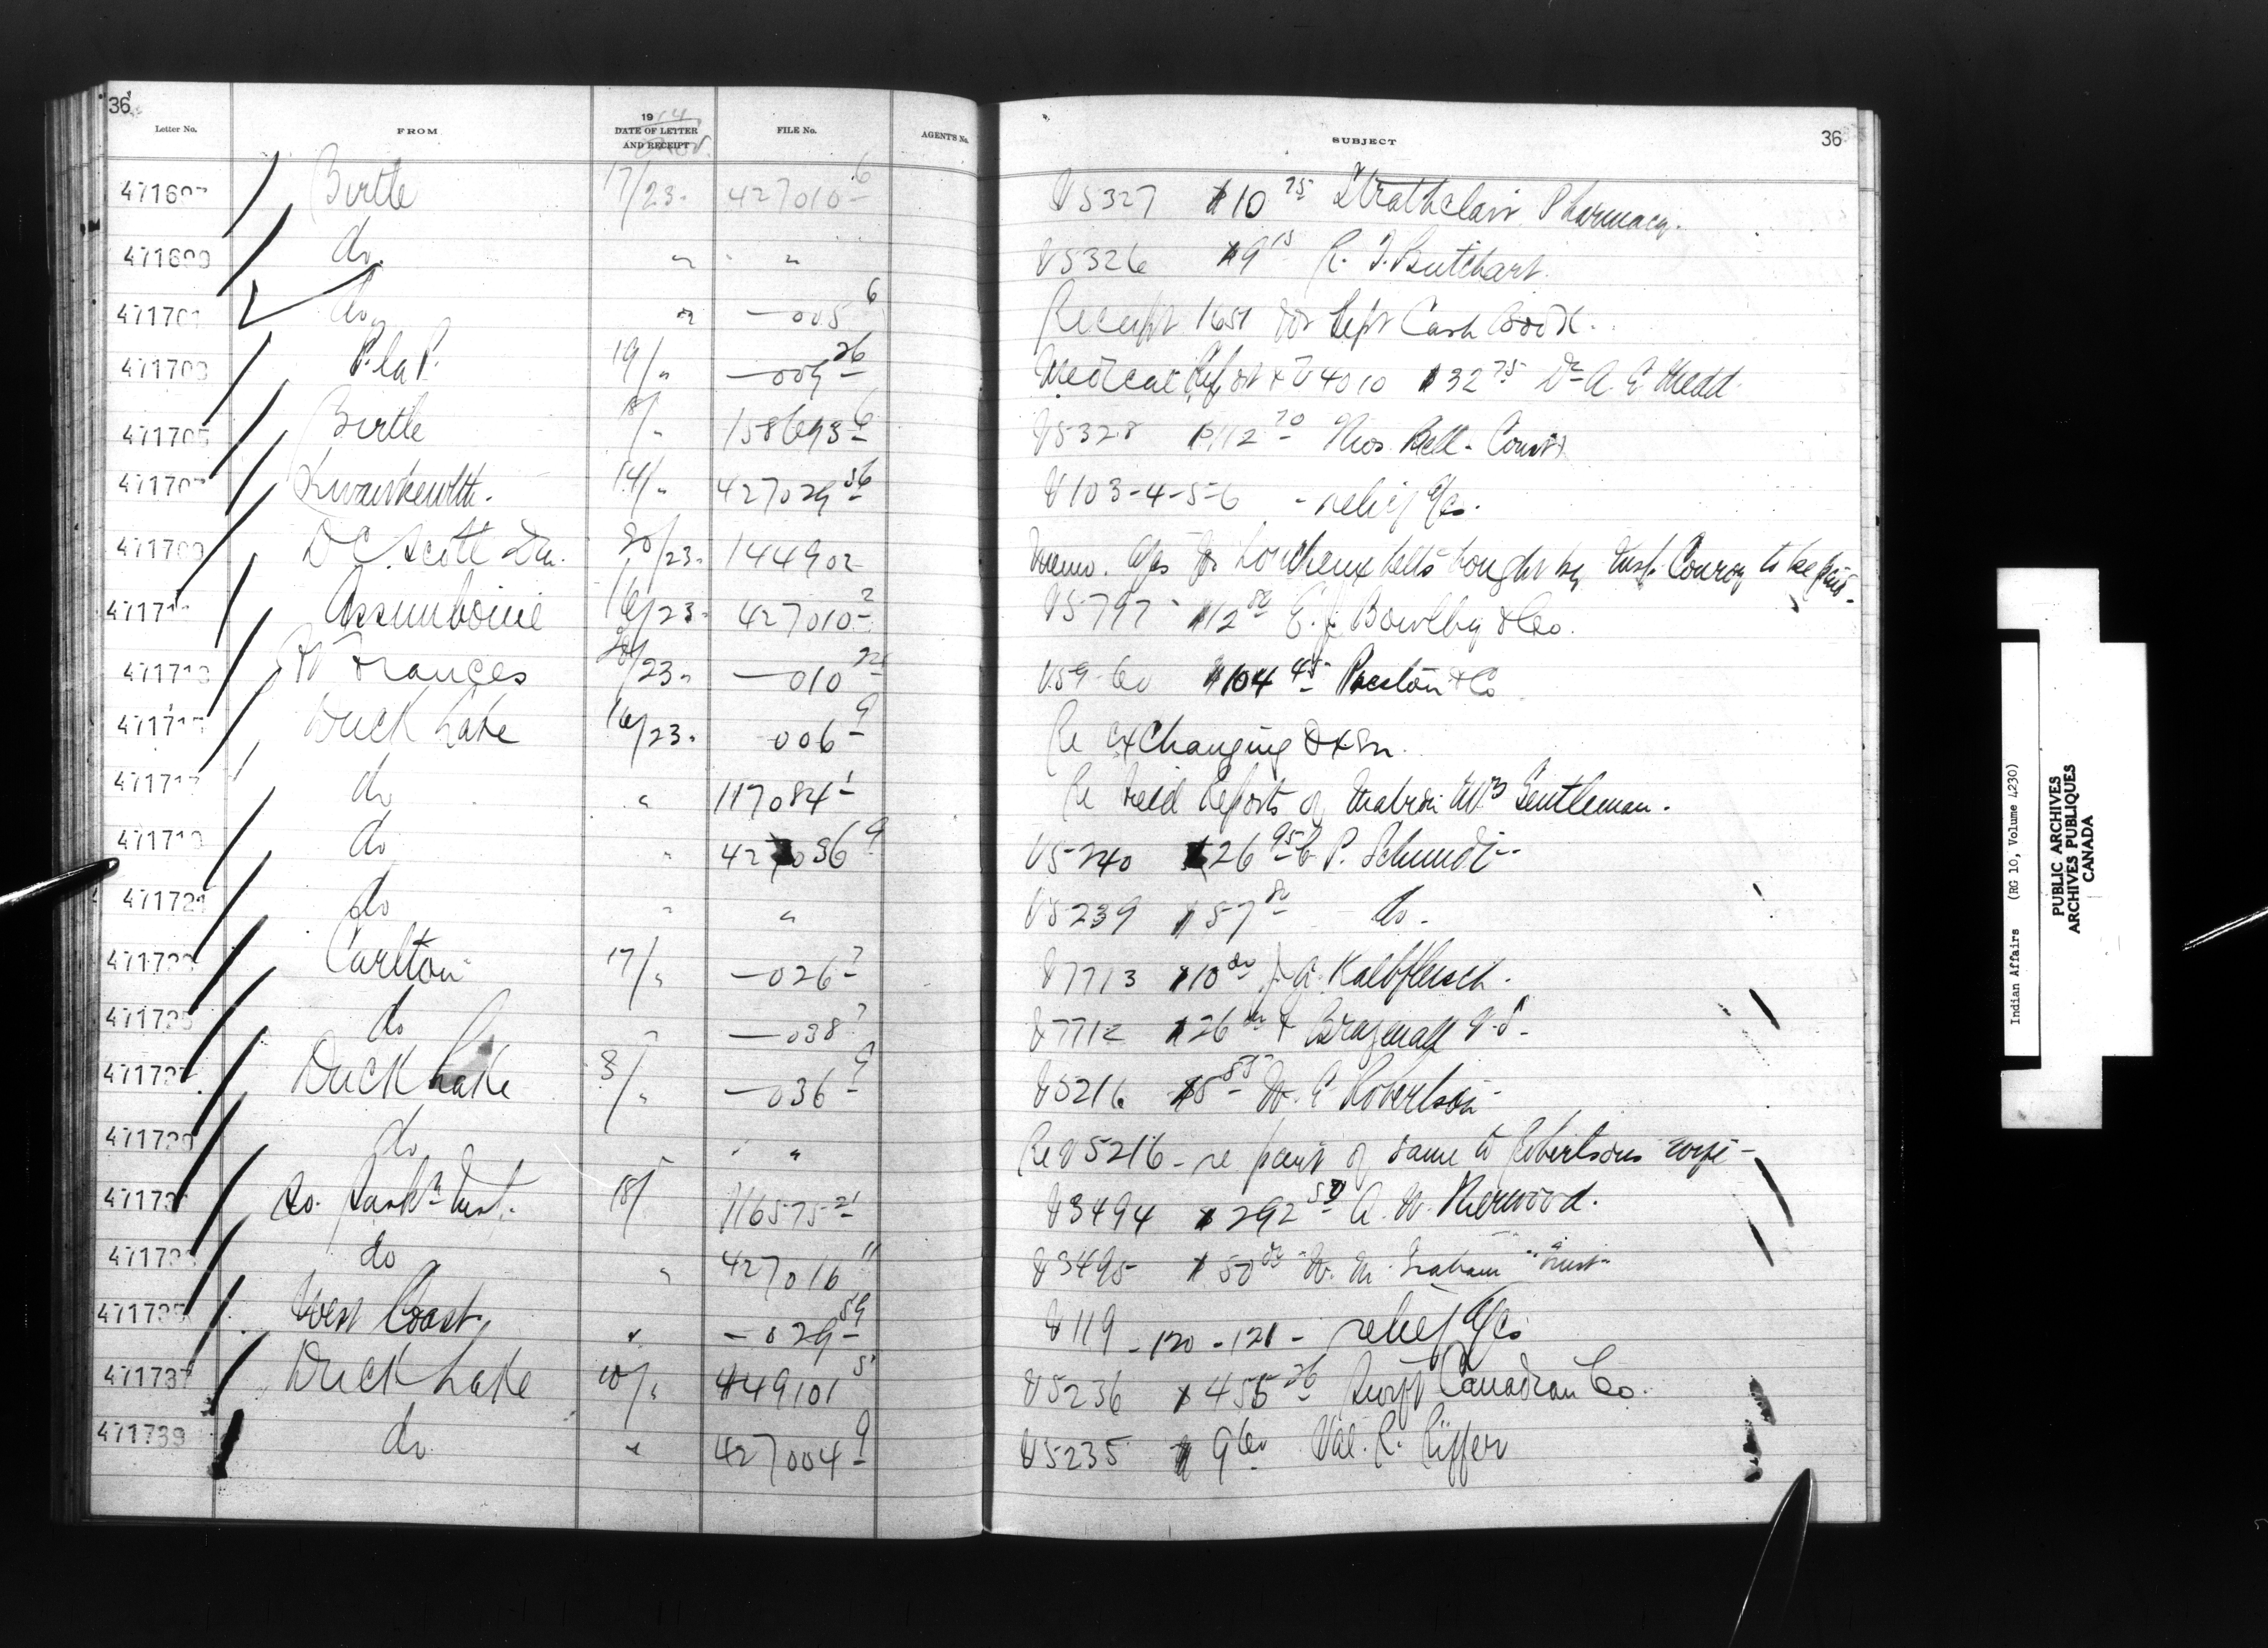 36
Letter No. FROM 1914 DATE OF LETTER AND RECEIPT FILE No. AGENT'S No. SUBJECT 36
Nov.
Birtle 17/23. 427010 6 V5327 $10 75 Strathclair Pharmacy.
do. " " V5326 $9 15 R. J. Butchart.
471701 do " — 005 6 Receipt 1651 for Sept Cash Book.
P. la P. 19/" — 009 26 Medical Report & V4010 $32 75 Dr A. E. Medd.
471705 Birtle 18/" 158693 6 V5328 $112 70 Thos. Bell - Const
471707 Kwawkewlth. 14/" 427029 56 V103-4-5-6 - relief a/cs.
471709 D C Scott 20/23. 144902 Memo. a/cs for bought by Insp. Conroy to be paid.
Assiniboine 16/23. 427010 2 V5797 $12 50 E. J. Bowlby & Co.
Ft Frances 20/23. — 010 22 V59-60 $104 45 Preston & Co
Duck Lake 16/23. 006 9 Re exchanging
471717 do " 117084 1 Re Reports of Matron Mrs Gentleman.
471719 do " 427036 9 V5240 $26 95 P. Schmidt
471721 do " " V5239 $57 80 do.
471723 Carlton 17/" — 026 7 V7713 $10 00 J. G. Kalbfleisch.
471725 do " — 038 7 V7712 $26 V.S.
471727 Duck Lake 3/" — 036 9 V5216 $5 85 W. E Robertson
471729 do " " Re V5216 - re paymt of same to Robertsons wife -
So. Sask. Insp. 18/ 116575 21 V3494 $292 50 A. W. Kerwood.
do " 427016 11 V3495 $50 00 W. M. Graham
471735 West Coast. " — 029 59 V119 - 120 - 121 - relief a/cs
471737 Duck Lake 10/" 449101 5 V5236 $455 26 Swift Canadian Co.
471739 do " 427004 9 V5235 $9 60 Val. R. Riffer
Indian Affairs (RG 10, Volume 4230)
PUBLIC ARCHIVES
ARCHIVES PUBLIQUES
CANADA